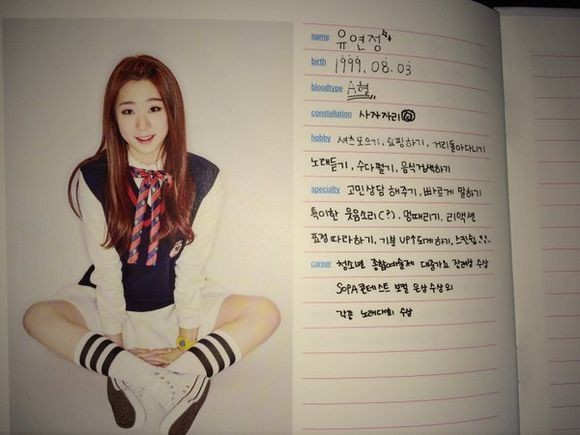 name 유연정
birth 1999. 08. 03
bloodtype A형
constellation 사자자리
hobby 셔츠모으기, 쇼핑하기, 거리돌아다니기
노래듣기, 수다떨기, 음식검색하기
specialty 고민상담 해주기, 빠르게 말하기
특이한 웃음소리(?), 멍때리기, 리액션
표정 따라하기, 기분 UP↑되게하기, 스킨십
career 청소년 종합예술제 대중가요 장려상 수상
SOPA콘테스트 보컬 은상 수상 외
각종 노래대회 수상